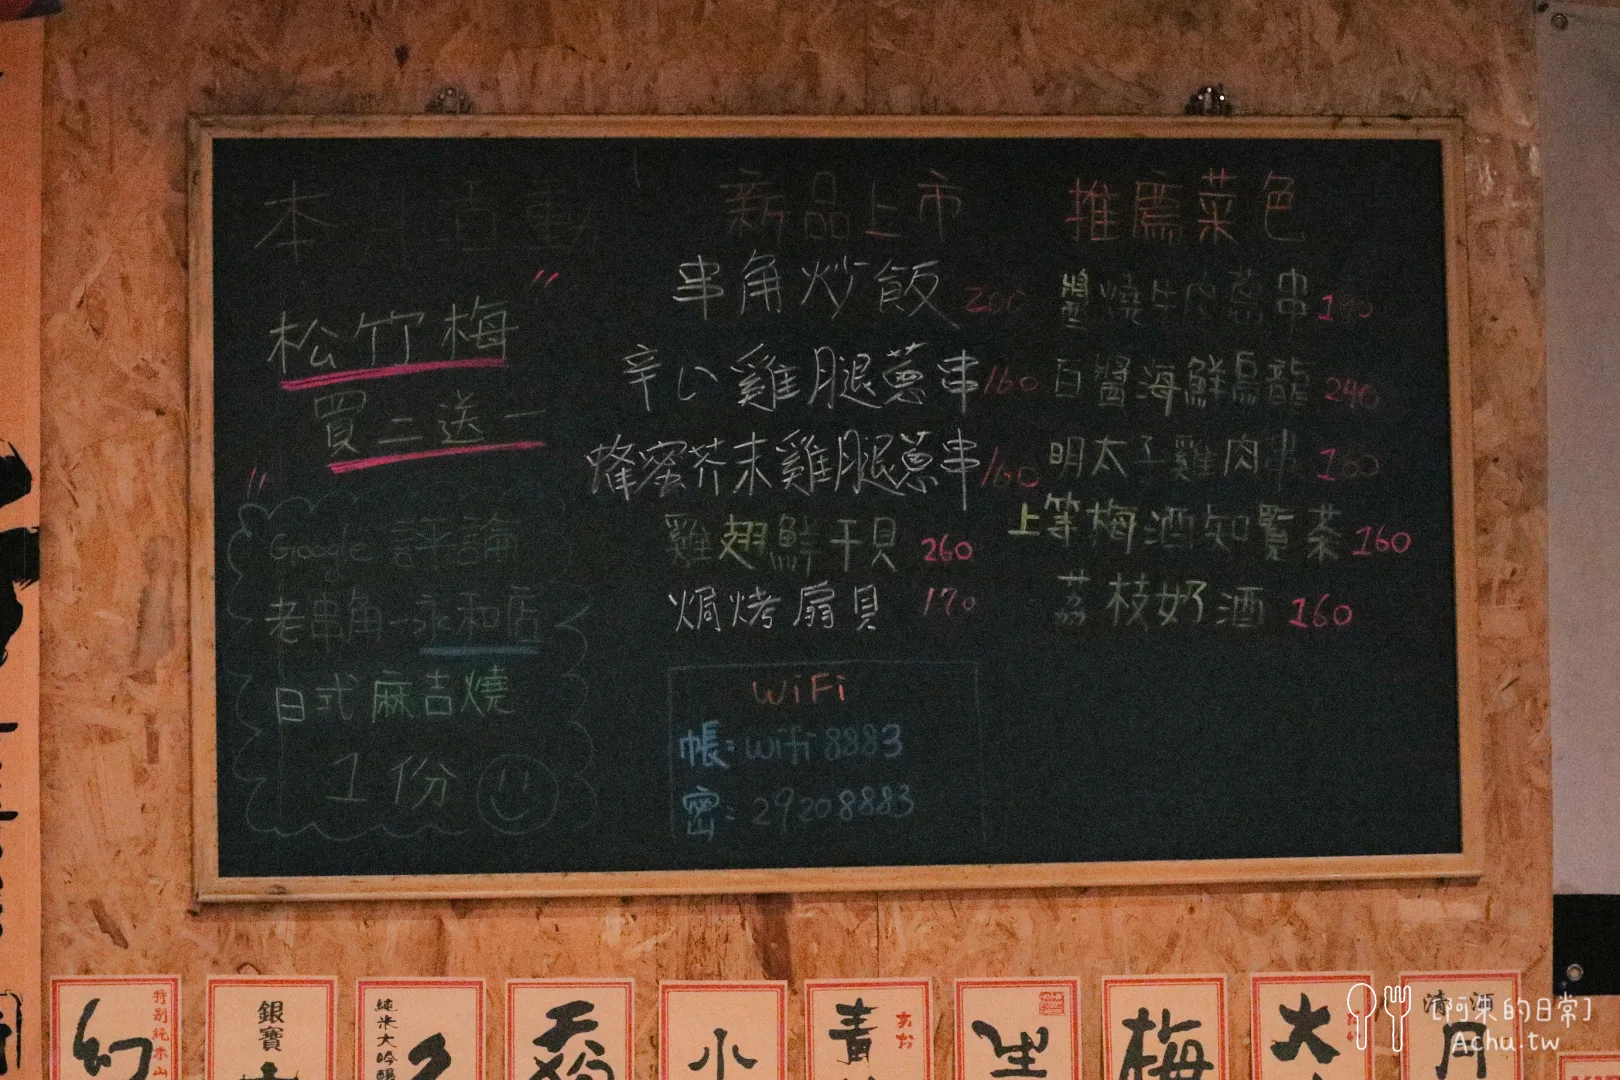 本月活動
松竹梅
買二送一
Google 評論
老串角-永和店
日式麻吉燒
1份
新品上市
串角炒飯 200
辛い雞腿蔥串 160
蜂蜜芥末雞腿蔥串 160
雞翅鮮干貝 260
焗烤扇貝 170
WiFi
帳:wifi8883
密:29208883
推薦菜色
醬燒牛肉蔥串
百醬海鮮烏龍 240
明太子雞肉串 160
上等梅酒知覧茶 160
荔枝奶酒 160
幻
特別純米山
銀寶
純米大吟釀
久
小
青
生
梅
火
清酒
月
[阿朱的日常]
Achu.tw